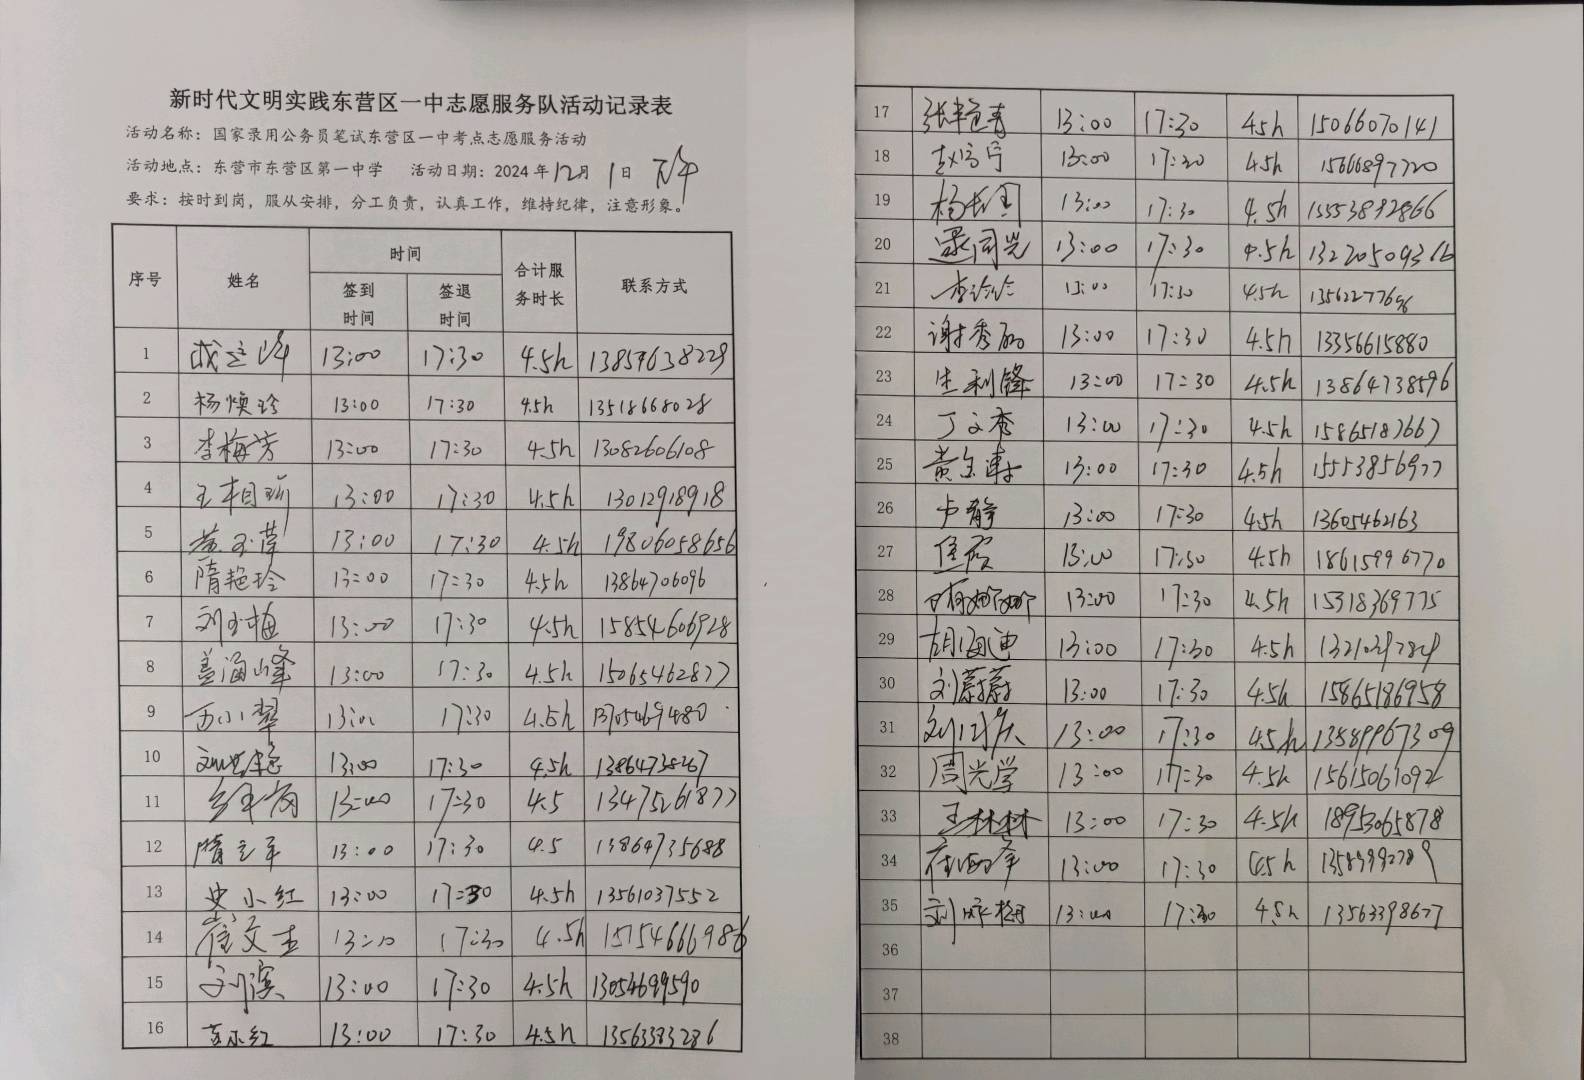 新时代文明实践东营区一中志愿服务队活动记录表
活动名称：国家录用公务员笔试东营区一中考点志愿服务活动
活动地点：东营市东营区第一中学 活动日期：2024年12月1日 下午
要求：按时到岗，服从安排，分工负责，认真工作，维持纪律，注意形象。
序号 姓名 时间 合计服务时长 联系方式
签到时间 签退时间
1 13:00 17:30 4.5h 13854638229
2 杨焕玲 13:00 17:30 4.5h 13518668028
3 李梅芳 13:00 17:30 4.5h 13082606108
4 王相瑜 13:00 17:30 4.5h 13012918918
5 13:00 17:30 4.5h 19806058656
6 隋艳玲 13:00 17:30 4.5h 13864706096
7 刘玉梅 13:00 17:30 4.5h 15854606928
8 盖涌峰 13:00 17:30 4.5h 15065462877
9 万小翠 13:00 17:30 4.5h 13705469480
10 13:00 17:30 4.5h 13864738267
11 13:00 17:30 4.5 13475261877
12 隋立军 13:00 17:30 4.5 13864735688
13 史小红 13:00 17:30 4.5h 13561037552
14 崔文杰 17:30 4.5h 15154666986
15 刘滨 13:00 17:30 4.5h 13054699590
16 13:00 17:30 4.5h 13563383286
17 13:00 17:30 4.5h 15066070141
18 赵富宁 13:00 17:30 4.5h 15666897720
19 13:00 17:30 4.5h 15553892866
20 梁同光 13:00 17:30 4.5h 13220509366
21 李玲玲 13:00 17:30 4.5h 13562277696
22 谢秀丽 13:00 17:30 4.5h 13356615880
23 生利锋 13:00 17:30 4.5h 13864738596
24 丁文秀 13:00 17:30 4.5h 15865187667
25 13:00 17:30 4.5h 15553856977
26 卢静 13:00 17:30 4.5h 13605462163
27 13:00 17:30 4.5h 18615996770
28 13:00 17:30 4.5h 15318369775
29 胡海迪 13:00 17:30 4.5h
30 刘蔚蔚 13:00 17:30 4.5h 15865186958
31 13:00 17:30 4.5h 13589967309
32 周光学 13:00 17:30 4.5h 15615061092
33 王林林 13:00 17:30 4.5h 18953065878
34 13:00 17:30 4.5h 13589992789
35 13:00 17:30 4.5h 13563398677
36
37
38